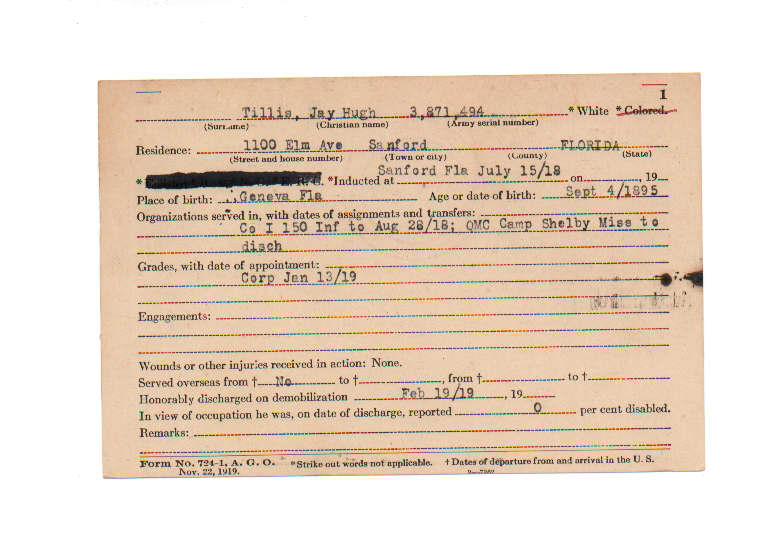 1
Tillis, Jay Hugh 3,871,494 *White *Colored.
(Surname) (Christian name) (Army serial number)
Residence: 1100 Elm Ave Sanford FLORIDA
(Street and house number) (Town or city) (County) (State)
Sanford Fla July 15/18
* *Inducted at on , 19
Place of birth: Geneva Fla Age or date of birth: Sept 4/1895
Organizations served in, with dates of assignments and transfers:
Co I 150 Inf to Aug 28/18; QMC Camp Shelby Miss to
disch
Grades, with date of appointment:
Corp Jan 13/19
Engagements:
Wounds or other injuries received in action: None.
Served overseas from † No to † , from † to †
Honorably discharged on demobilization Feb 19/19 , 19
In view of occupation he was, on date of discharge, reported 0 per cent disabled.
Remarks:
Form No. 724-1, A. G. O. *Strike out words not applicable. † Dates of departure from and arrival in the U. S.
Nov. 22, 1919.